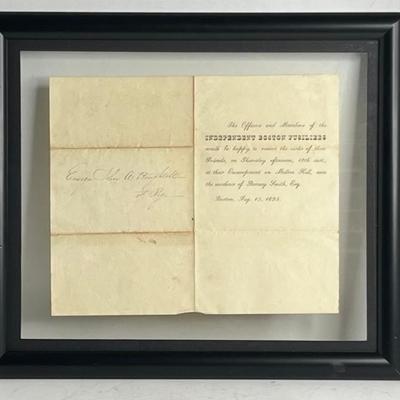 The Officers and Members of the
INDEPENDENT BOSTON FUSILIERS
would be happy to receive the visits of their
Friends, on Thursday afternoon, 19th inst.,
at their Encampment on Milton Hill, near
the residence of Barney Smith, Esq.
Boston, Aug. 15, 1825.